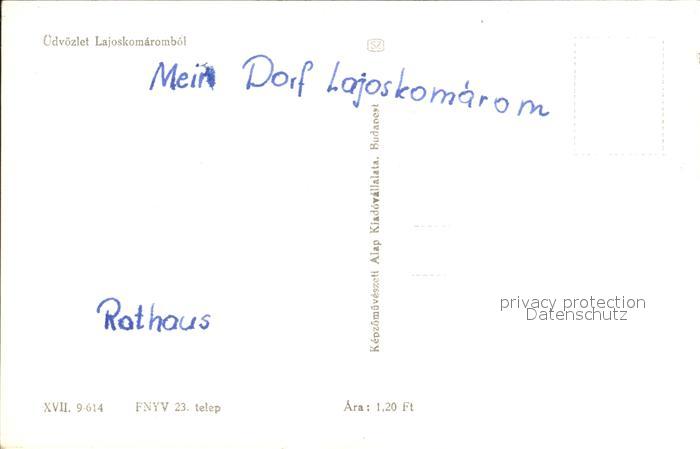 Üdvözlet Lajoskomáromból
SZ
Mein Dorf Lajoskomárom
Képzőművészeti Alap Kiadóvállalata, Budapest
privacy protection
Datenschutz
Rathaus
XVII. 9-614 FNYV 23. telep Ára: 1,20 Ft